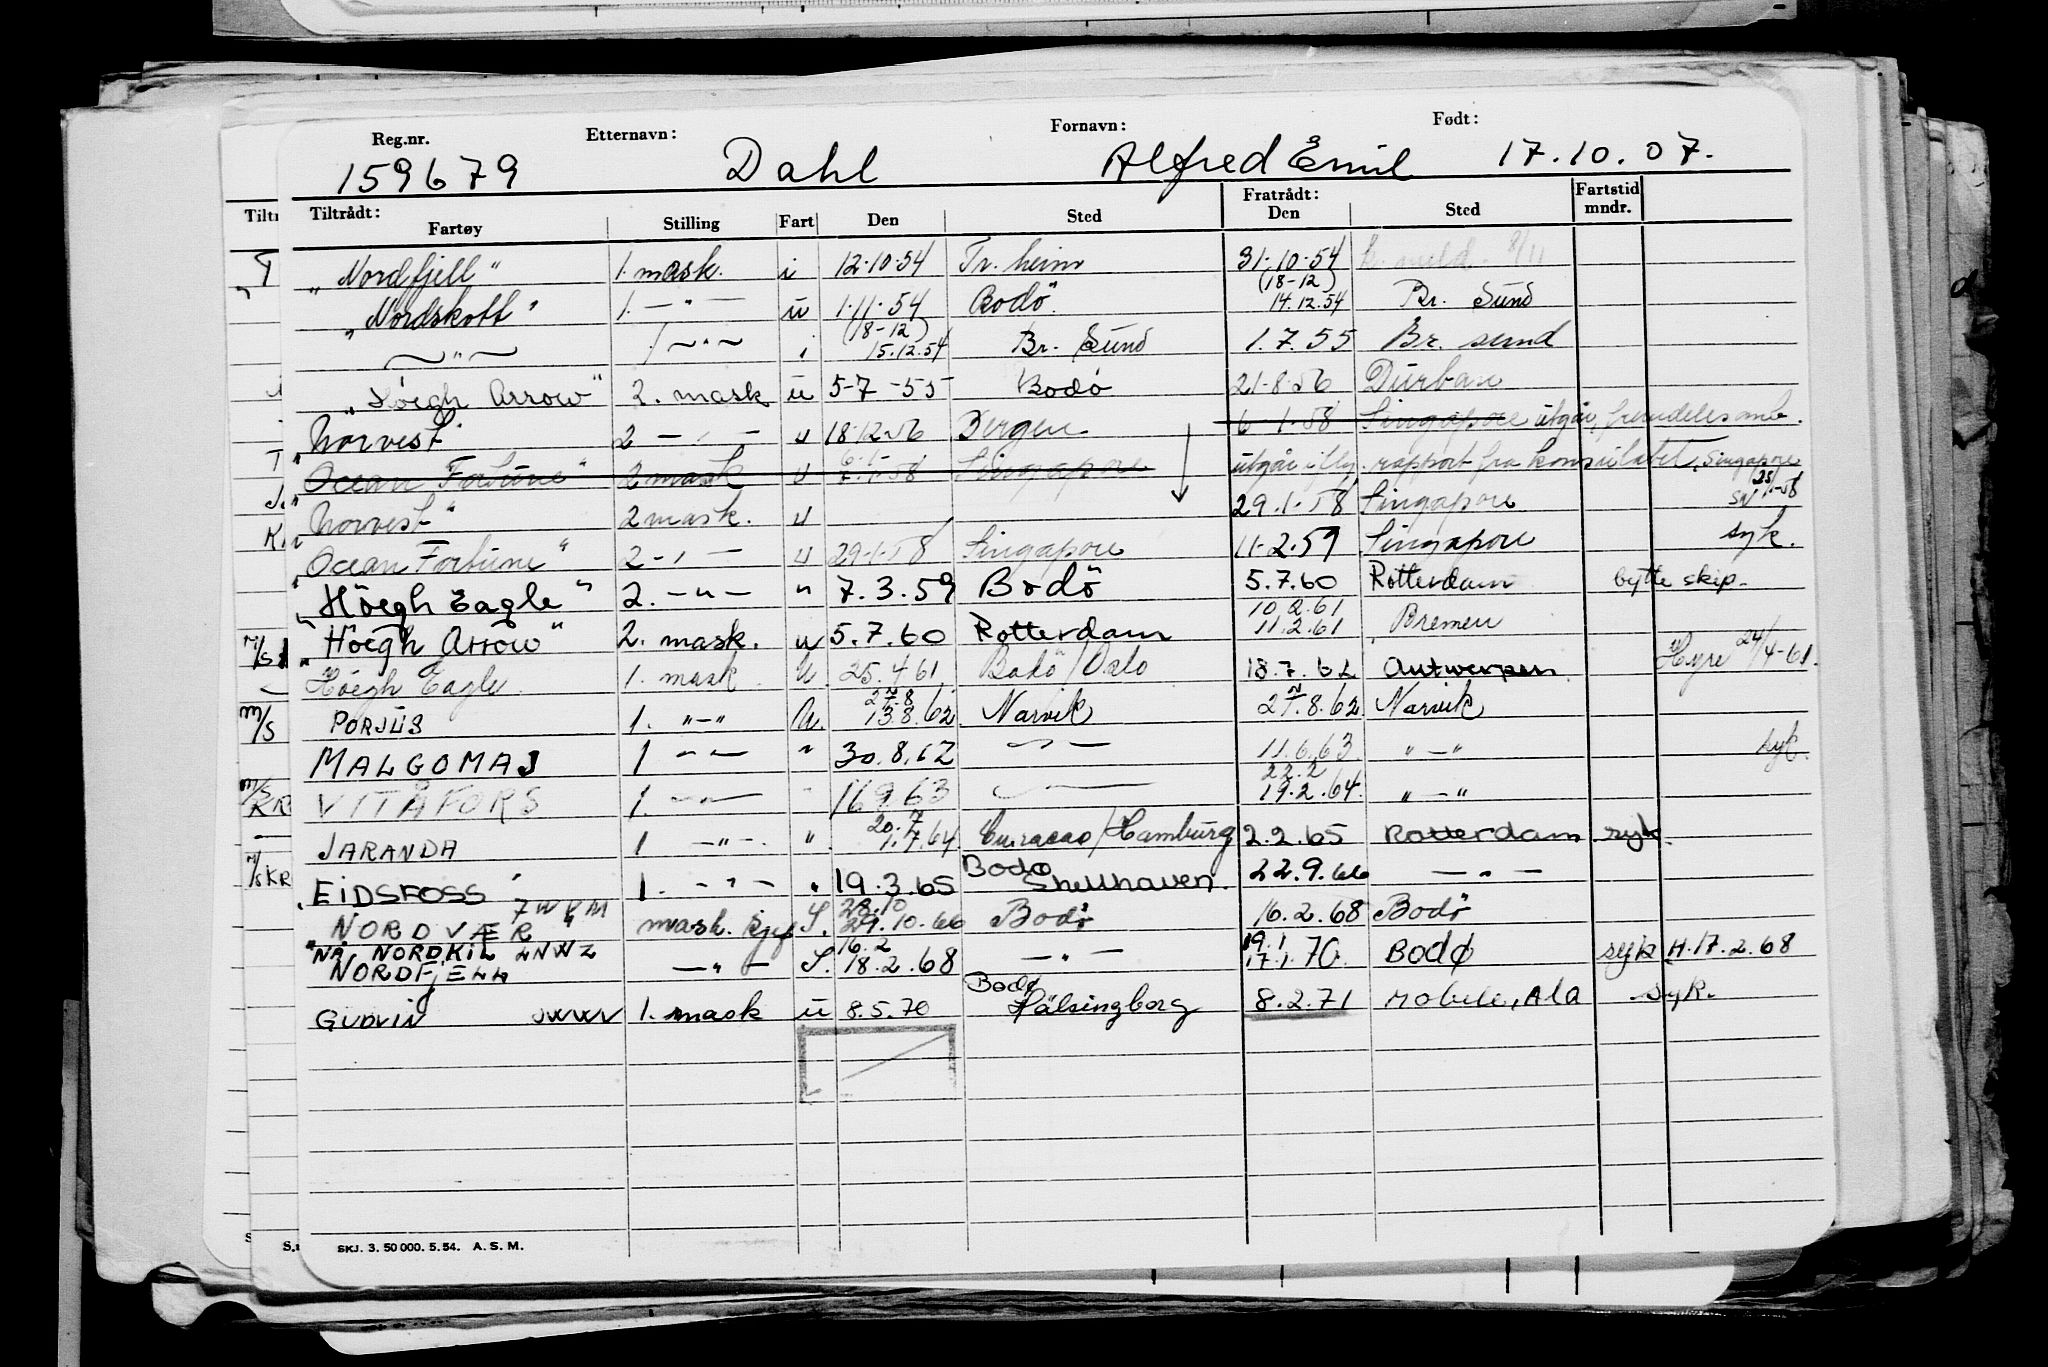 Reg.nr. Etternavn: Fornavn: Født:
159679 Dahl Alfred Emil 17.10.07.
Tiltrådt: Fratrådt: Fartstid
Fartøy Stilling Fart Den Sted Den Sted mndr.
"Nordfjell" 1. mask. i 12.10.54 Tr.heim 31.10.54 k. meld. 8/11
"Nordskott" 1. —"— u 1.11.54 Bodö. (18-12) 14.12.54 Br. Sund
—"— 1 —"— i (18-12) 15.12.54 Br. Sund 1.7.55 Br. sund
"Höegh Arrow" 2. mask u 5-7-55 Bodö 21-8-56 Durban
"Norvest" 2 —"— u 18.12.56 Bergen 6-1-58 Singapore utgår, fremdeles omb.
"Ocean Fortune" 2 mask u 6.1 7.1.58 Singapore utgår iflg. rapport fra konsulatet, Singapore 25/1-58
"Norvest" 2 mask. u 29.1.58 Singapore
"Ocean Fortune" 2 —"— u 29.1.58 Singapore 11.2.59 Singapore syk.
"Höegh Eagle" 2. —"— " 7.3.59 Bodö 5.7.60 Rotterdam bytte skip.
"Höegh Arrow" 2. mask. u 5.7.60 Rotterdam 10.2.61 11.2.61 Bremen
Höegh Eagle 1. mask. U. 25.4.61 Bodö/Oslo 18.7.62 Antwerpen Hyre 24/4-61.
PORJUS 1. "—" U. 13.8.62 Narvik 27.8.62 Narvik
MALGOMAJ 1 —"— " 30.8.62 —"— 11.6.63 "—" syk.
VITÅFORS 1. —"— " 16.9.63 —"— 22.2 19.2.64. "—"
JARANDA 1 —"—. ". 20.7 1.7.64 Curacao/Hamburg 2.2.65 Rotterdam syk.
EIDSFOSS 1. —"— " 19.3.65 Bodø Shellhaven. 22.9.66 —"—
NORDVÆR mask. S. 28.10 29.10.66 Bodö 16.2.68 Bodö
"NÅ, NORDKIL LNWZ
NORDFJELL —"— S. 16.2 18.2.68 —"— 19.1 17.1.70. BODØ syk H.17.2.68
GUDVIN JWWV 1. mask u 8.5.70 Bodø Hälsingborg 8.2.71 Mobile, Ala syk.
SKJ. 3. 50 000. 5. 54. A. S. M.